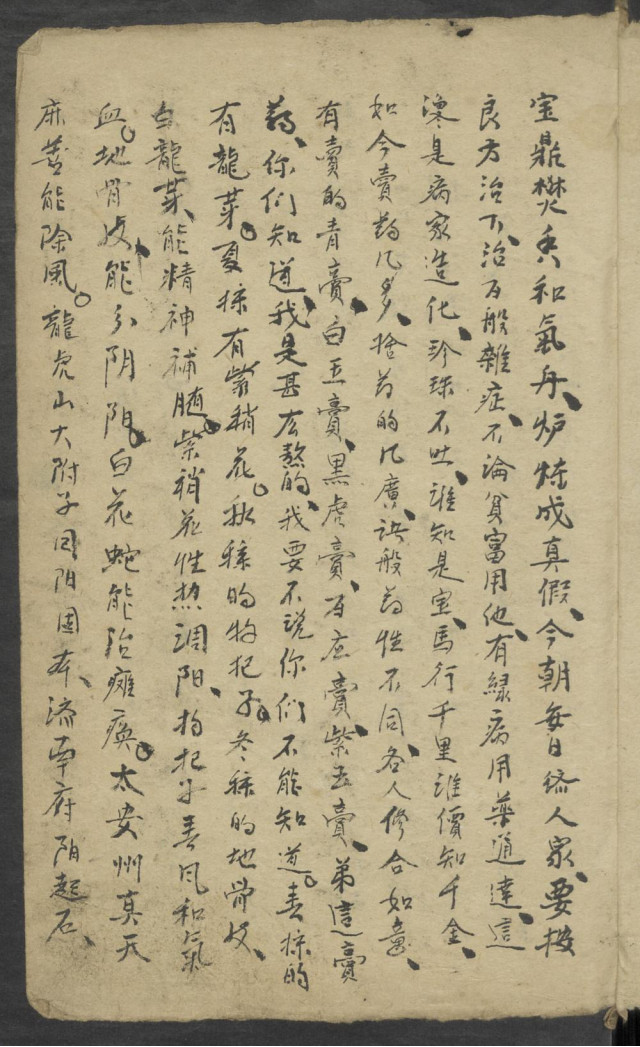 宝鼎焚香和氣舟、炉煉成真假、今朝每日済人家、要按
良方治下、治百般雜症、不論貧富用他、有緑病用藥通達、這
是病家造化、珍珠不吐、誰知是宝、馬行千里誰價知千金、
如今賣药几多、捨药的几廣、諸般药性不同、各人修合如意、
有賣的青膏、白玉膏、黒虎膏、百应膏、紫玉膏、弟這膏
药、你们知道、我是甚広熬的、我要不说你们不能知道。春採的
有龍芽。夏採有紫稍花。秋採的枸杞子。冬採的地骨皮、
白龍芽、能精神補髄。紫稍花性热調阳、枸杞子善风和氣
血。地骨皮、能分阴阳。白花蛇能治癱瘓。太安州真天
麻善能除風。龍虎山大附子回阳固本、済南府阳起石、